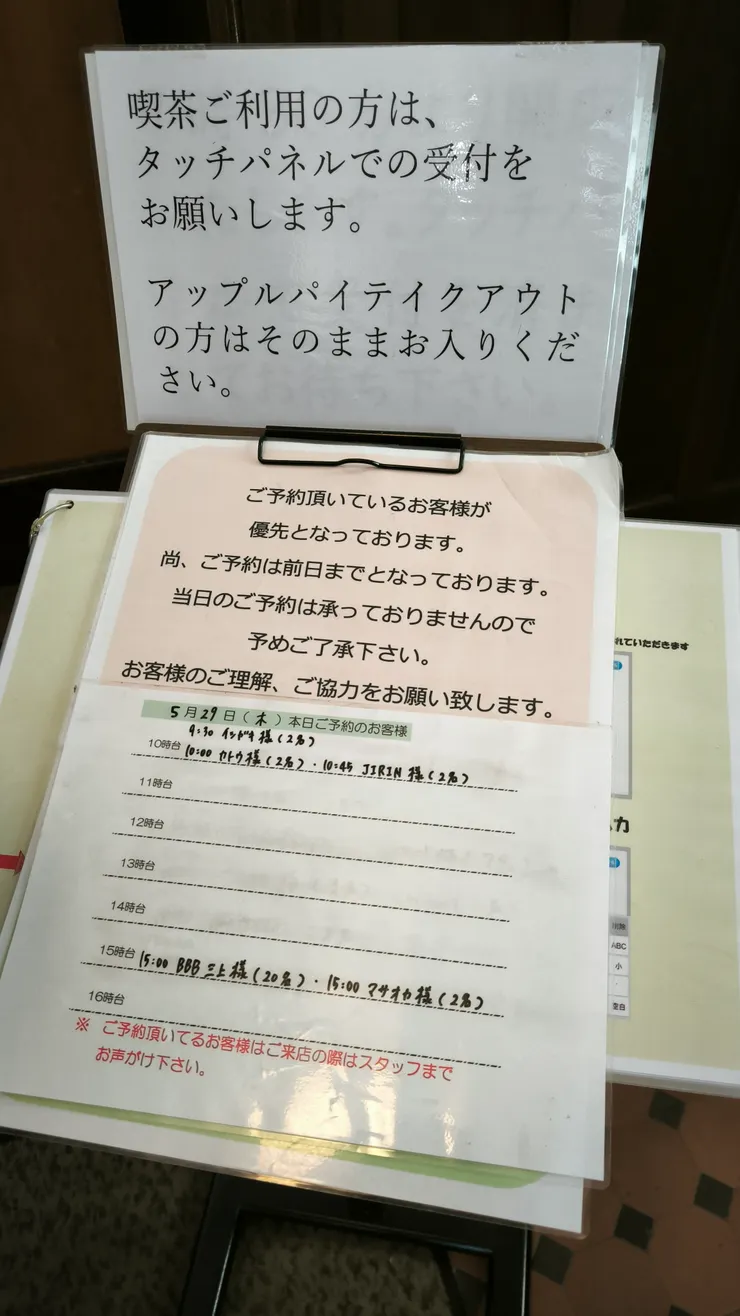 喫茶ご利用の方は、
タッチパネルでの受付を
お願いします。
アップルパイテイクアウト
の方はそのままお入りくだ
さい。
ご予約頂いているお客様が
優先となっております。
尚、ご予約は前日までとなっております。
当日のご予約は承っておりませんので
予めご了承下さい。
お客様のご理解、ご協力をお願い致します。
5月29日(木)本日ご予約のお客様
9:30 インドキ様(2名)
10時台 10:00 カトウ様(2名)・10:45 JIRIN様(2名)
11時台
12時台
13時台
14時台
15時台 15:00 BBB三上様(20名)・15:00 マサオカ様(2名)
16時台
※ ご予約頂いてるお客様はご来店の際はスタッフまで
お声がけ下さい。
れていただきます
力
削除
ABC
小
空白